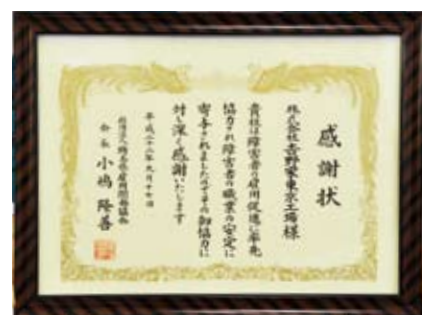 感謝状
株式会社吉野家東京工場様
貴社は障害者の雇用促進に率先
協力され障害者の職業の安定に
寄与されましたのでその御協力に
対し深く感謝いたします
平成二十二年九月十七日
社団法人埼玉県雇用開発協会
会長 小嶋隆善